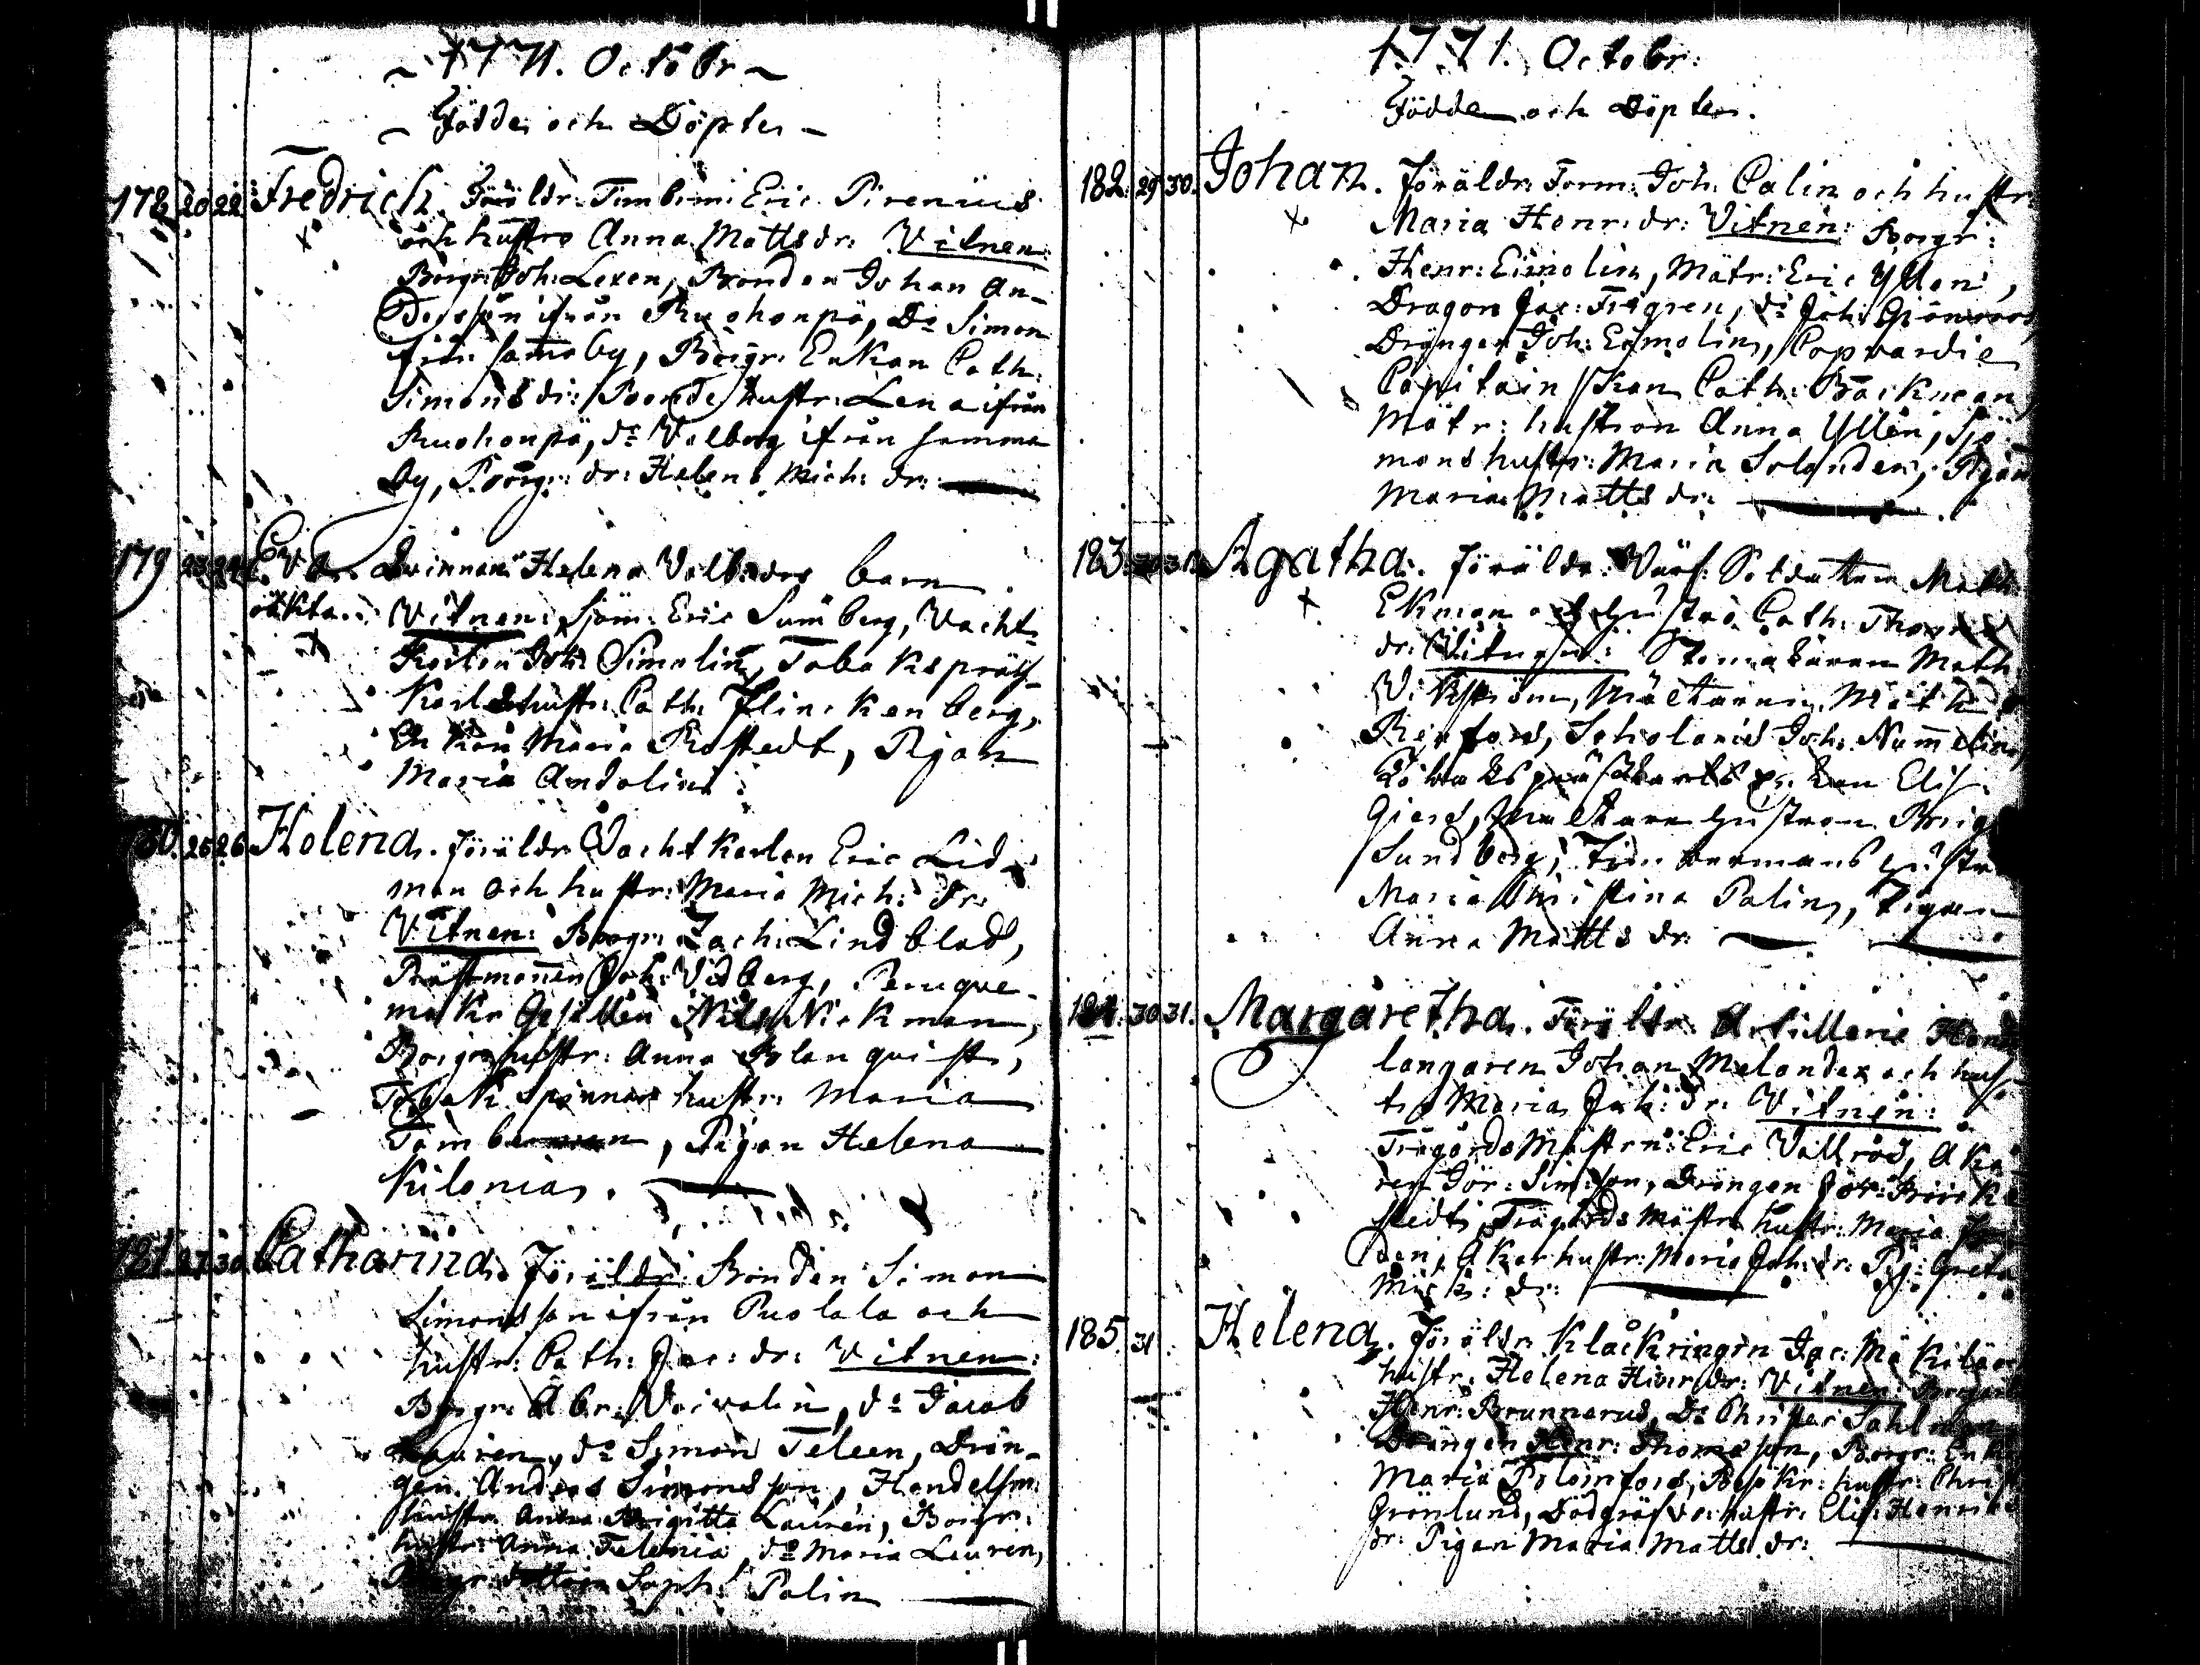 ~ 1771. Octobr ~
Födde och Döpte
178 20 22 Fredrich. Föräldr. Timberm: Eric Pirenius
och hustro Anna Matts dr: Vitnen:
Borgr: Joh: Lexen, Bonden Johan An-
dersson ifrån Ruohonpä, Do Simon
från sama by, Borgr: Enkan Cath:
Simons dr: Bonde hustr: Lena ifrån
Ruohonpä, do Valborg ifrån samma
by, Borgr: dr: Helena Mich: dr:
179 23 24 Eva Qvinnan Helena Valb: drs barn
oäkta. Vitnen: Sjöm: Eric Sumberg, Vacht-
Karlen Joh: Simelin, Tobaks
Karls hustr: Cath: Flinckenberg,
Enkan Maria Rostedt, Pigan
Maria Andolin:
180. 25 26 Helena. Föräldr. Vachtkarlen Eric Lid-
man och hustr: Maria Mich: dr:
Vitnen: Borgr: Zach: Lindblad,
Joh: Vidberg, Peruque-
makr Gesällen Nils Nickman,
Borgrs hustr: Anna Blanquist,
Tobak Spinnar hustr: Maria
Tam, Pigan Helena
Kilonia.
181. 27 30 Catharina. Föräldr: Bonden Simon
Simonsson ifrån Puolala och
hustr: Cath: Jac: dr: Vitnen:
Borgr: Abr: Voivalin, do Jacob
Lauren, do Simon Teleen, Drän-
gen Anders Simonsson, Handelsm:
hustr: Anna Brigitta Lauren, Borgr:
hustr: Anna Telenia, do Maria Lauren,
Borgr: dottren Soph: Palin
1771. Octobr:
Födde och Döpte.
182. 29 30. Johan. Föräldr: Torm: Joh: Palin och hustr:
Maria Henr: dr: Vitnen: Borgr:
Henr: Eimolin, Mätr: Eric Yllen,
Dragon Jac: Trägren, do Joh:
Drängen Joh: Eimolin, Copvardie
Capitain Fran Cath: Backman,
Mätr: hustron Anna Yllen, Sjö-
mans hustr: Maria Solander, Pigan
Maria Matts dr:
183. 30 31. Agatha. Föräldr: Värf: Soldaten Math:
Ekman och hustro Cath: Thom
dr: Vitnen: Math:
Vikström, Mältaren Math:
Renfors, Scholaris Joh: Nummelin,
Elis:
Giers, Mältare hustron Brig:
Sundberg, Timbermans hustr
Maria Christina Palin, Pigan
Anna Matts dr:
184. 30 31. Margaretha. Föräldr: Artillerie Hand
langaren Johan Melander och hus-
tro Maria Joh: dr: Vitnen:
Trägårds Mästrn: Eric Vallroos, Åka
ren Jör: Simsson, Drängen Jör:
stedt, Trägårds Mästr: hustr: Maria
den, Åkar hustr: Maria Joh: dr: Pig: Greta
Mich: dr:
185. 31. Helena. Föräldr: Klåckringrn Jac: Mäkilä och
hustr: Helena Henr: dr: Vitnen:
Henr: Brunnerus, Do Christer Sahl
Drängen Henr: Thomasson, Borgr: Enk
Maria Polvinfors, Besökr: hustr: Christ
Grönlund, Dödgräfvr: hustr: Elis: Henric
dr: Pigan Maria Matts dr: